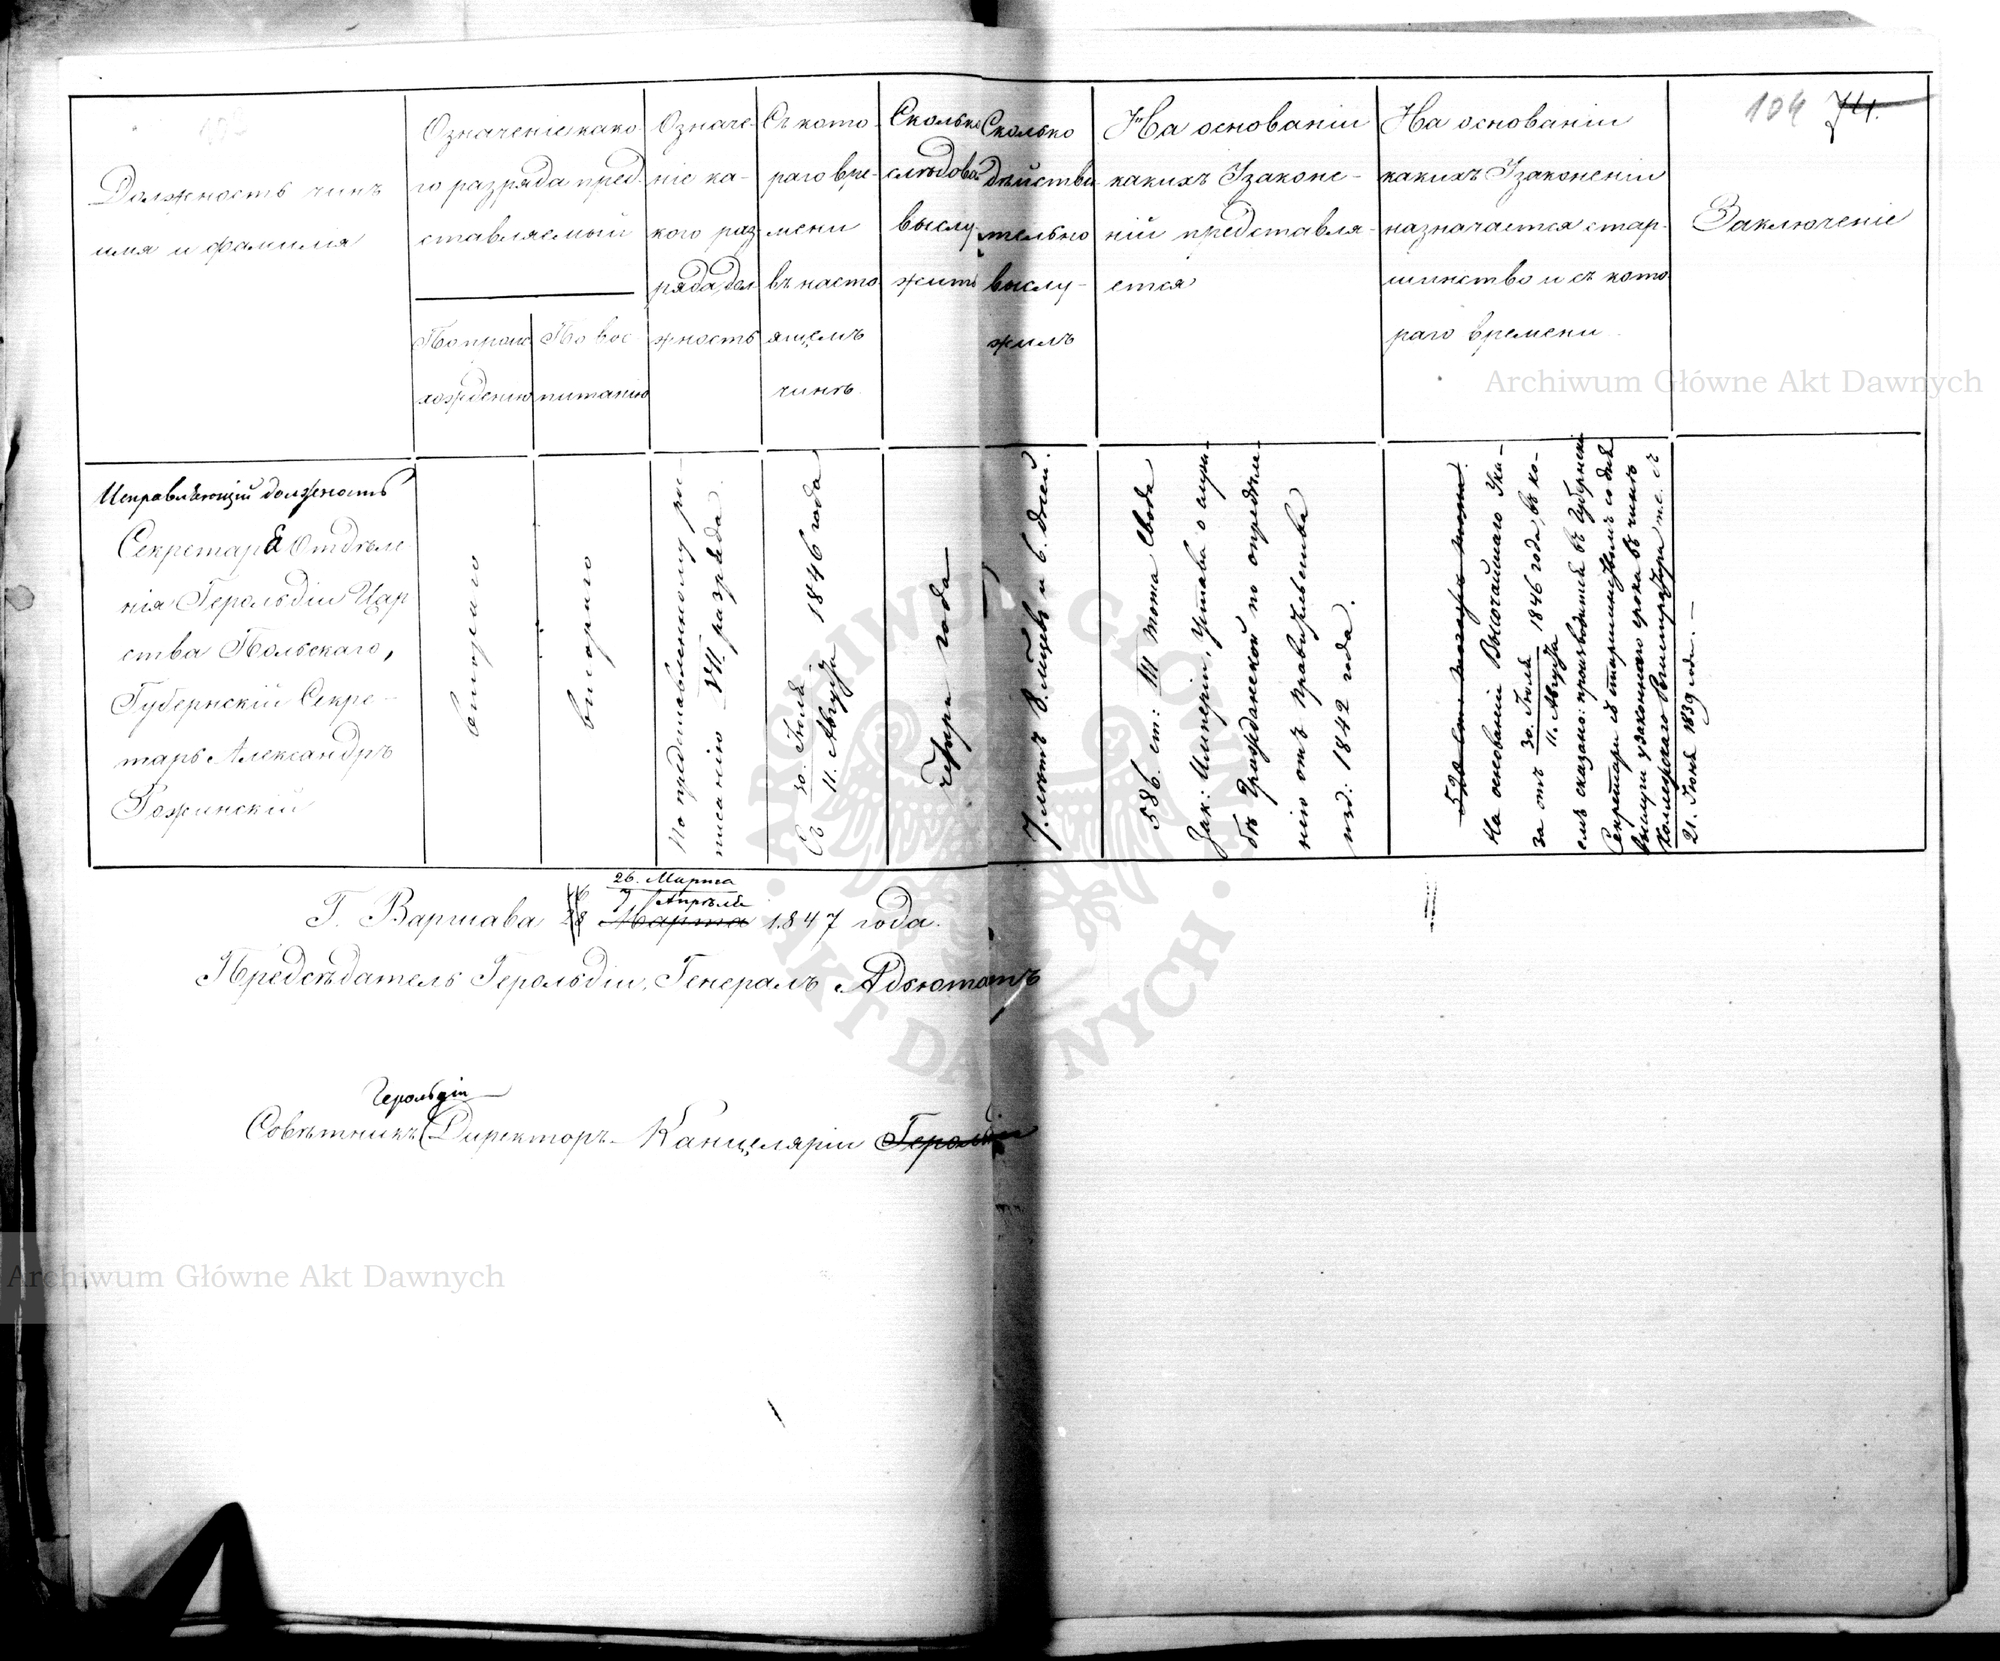 104 74.
Должность чинъ
имя и фамилія
Означеніе како-
го разряда пред-
ставляемый
По проис-
хожденію
По вос-
питанію
Означе-
ніе ка-
кого раз-
ряда дол-
жность
Съ кото-
раго вре-
мени
въ насто-
ящемъ
чинѣ.
Сколько
слѣдова
выслу-
жить
Сколько
дѣйстви-
тельно
выслу-
жилъ
На основаніи
какихъ Узаконе-
ній представля-
ется
На основаніи
какихъ Узаконеній
назначается стар-
шинство и съ кото
раго времени
Заключеніе
Исправляющій должность
Секретаря Отдѣле
нія Герольдіи Цар
ства Польскаго,
Губернскій Секре-
тарь Александръ
Гожинскій
втораго
втораго
По представленному ро-
писанію VII разряда.
Съ 30. Іюля
11. Августа 1846 года
Четыре года
7. лѣтъ 8. мѣсяцевъ и 6. дней.
586. ст: III тома Свода
Зак: Имперіи, Устава о служ-
бѣ Гражданской по опредѣле
нію отъ Правительства
изд: 1842 года.
526 ст. тогоже тома.
На основаніи Высочайшаго Ука-
за отъ 30. Іюля
11. Августа 1846 года, въ ко-
емъ сказано: производится въ Губернскіе
Секретари со старшинствомъ со дня
выслуги узаконеннаго срока въ чинѣ
Коллежскаго Регистратора т. е. съ
21. Іюня 1839 года. —
26. Марта
7. Апрѣля
Г. Варшава 28 Марта 1847 года.
Предсѣдатель Герольдіи, Генералъ Адъютантъ
Герольдіи
Совѣтникъ Директоръ Канцеляріи Герольдіи
Archiwum Główne Akt Dawnych
Archiwum Główne Akt Dawnych
ARCHIWUM GŁÓWNE AKT DAWNYCH